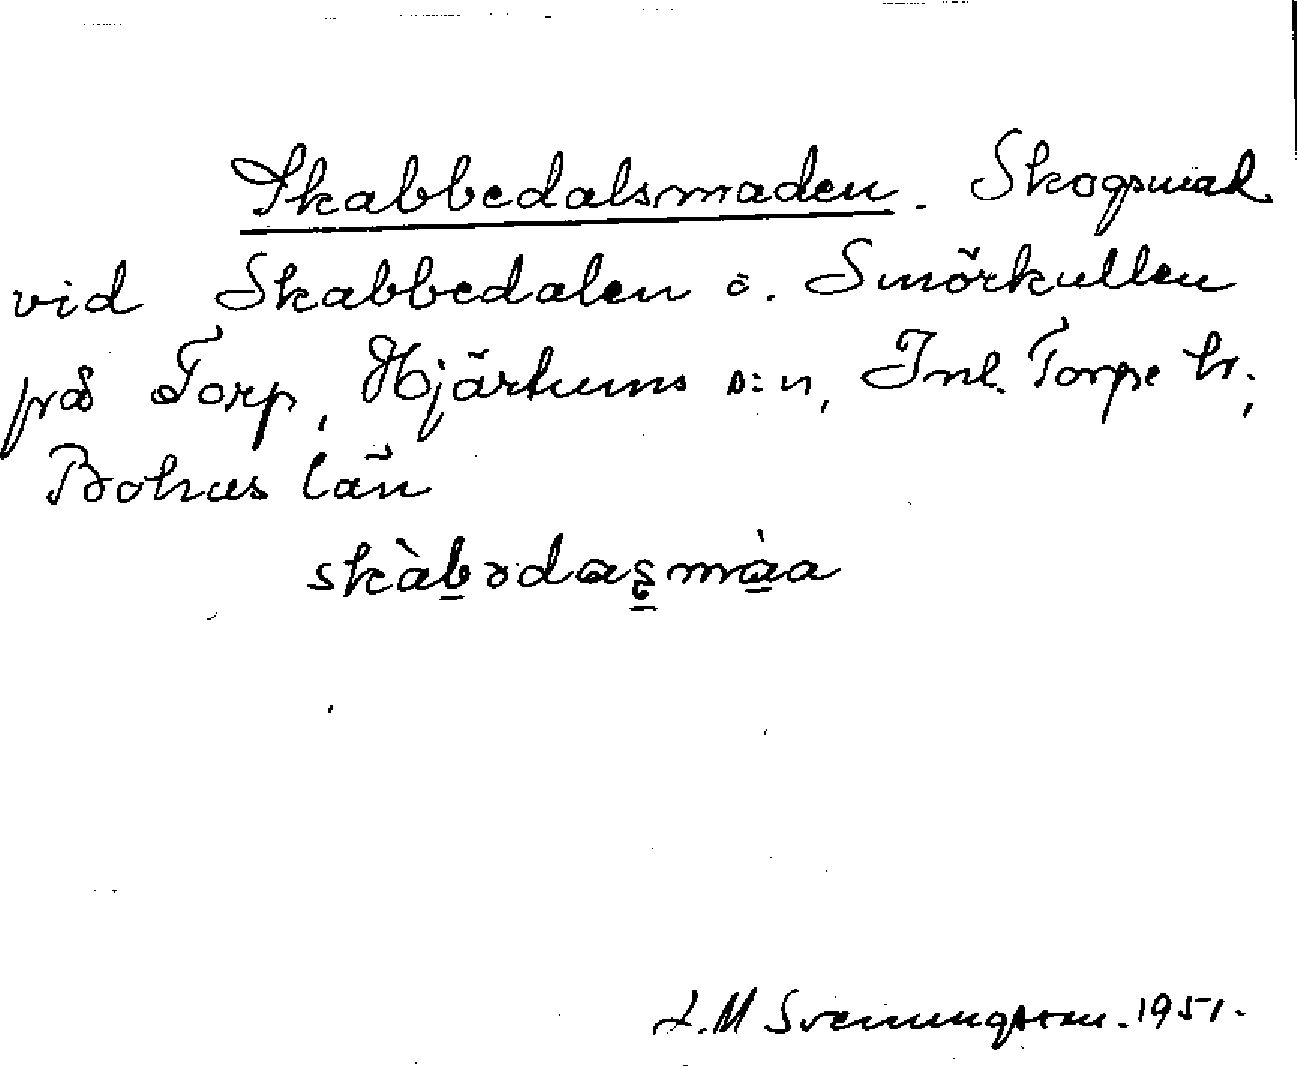 Skabbedalsmaden. Skogsmad
vid Skabbedalen o. Smörkullen
på Torp, Hjärtums s:n, Inl. Torpe hr;
Bohus län
skàbədaʂmàa
L.M Svenungsson. 1951.